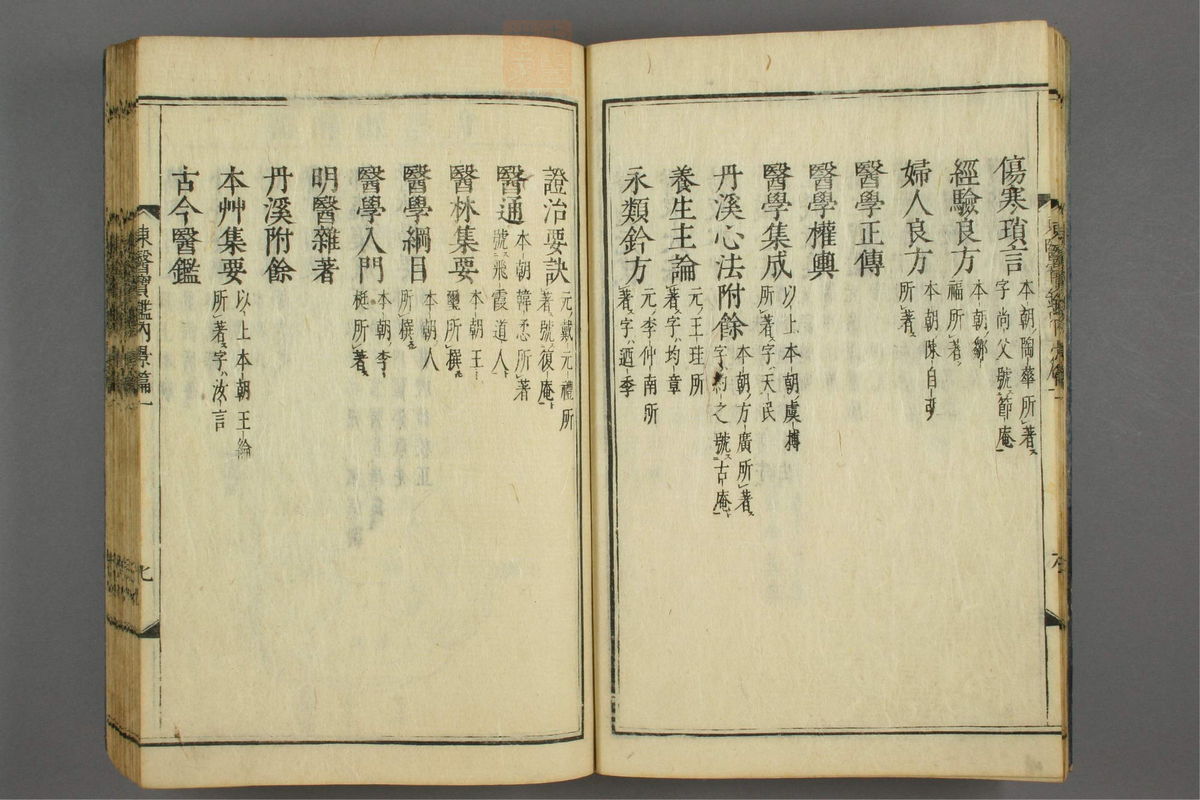 傷寒瑣言 本朝陶華所著 字尚父號節庵
經驗良方 本朝鄒福所著
婦人良方 本朝陳自明所著
醫學正傳
醫學權輿
醫學集成 以上本朝虞摶所著字天民
丹溪心法附餘 本朝方廣所著 字約之號古庵
養生主論 元王珪所著字均章
永類鈐方 元李仲南所著字廼季
證治要訣 元戴元禮所著號復庵
醫通 本朝韓𢘅所著號飛霞道人
醫林集要 本朝王璽所撰
醫學綱目 本朝人所撰
醫學入門 本朝李梴所著
明醫雜著
丹溪附餘
本艸集要 以上本朝王綸所著字汝言
古今醫鑑
東醫寶鑑內景篇一
七